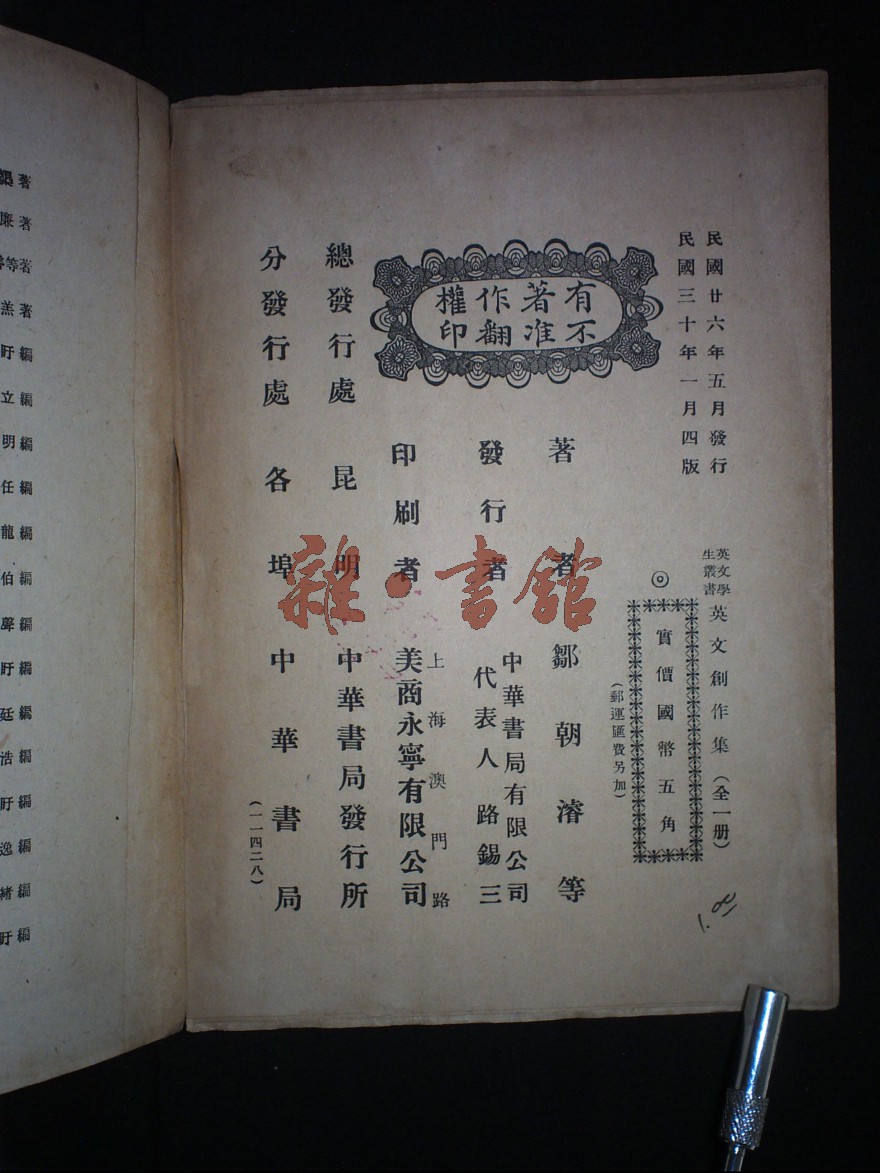 民國廿六年五月發行
民國三十年一月四版
英文學生叢書
英文創作集(全一册)
◎實價國幣五角
(郵運匯費另加)
有著作權
不准翻印
著者 鄒朝濬等
發行者 中華書局有限公司
代表人路錫三
印刷者 上海澳門路
美商永寧有限公司
總發行處 昆明 中華書局發行所
分發行處 各埠 中華書局
(一一四二八)
1.8
雜·書館
著
廉著
等著
羔著
盱編
立編
明編
任編
龍編
伯編
聲編
盱編
廷編
浩編
盱編
逸編
緒編
盱編